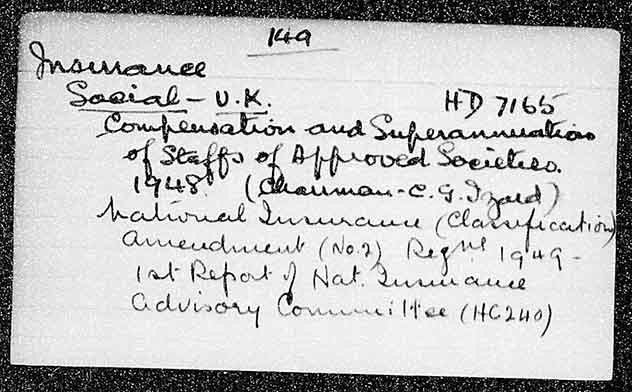 149
Insurance
Social - U.K. HD 7165
Compensation and Superannuation
of Staffs of Approved Societies.
1948. (Chairman - C. G. Izard)
National Insurance (Classification)
Amendment (No. 2) Regns 1949 -
1st Report of Nat. Insurance
Advisory Committee (HC 240)